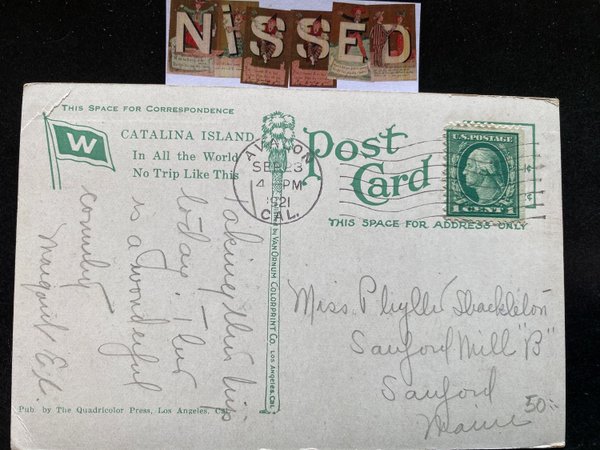 NiSSED
THIS SPACE FOR CORRESPONDENCE
W
CATALINA ISLAND
In All the World
No Trip Like This
AVALON
SEP 23
4 PM
1921
CAL.
Post
Card
U.S. POSTAGE
1 CENT 1
THIS SPACE FOR ADDRESS ONLY
VAN ORNUM COLORPRINT CO. LOS ANGELES, CAL.
Taking this trip
today. This
is a wonderful
country
Margaret E.
Miss Phyllis Shackleton
Sanford Mill "B"
Sanford
Maine
50
Pub. by The Quadricolor Press, Los Angeles, Cal.